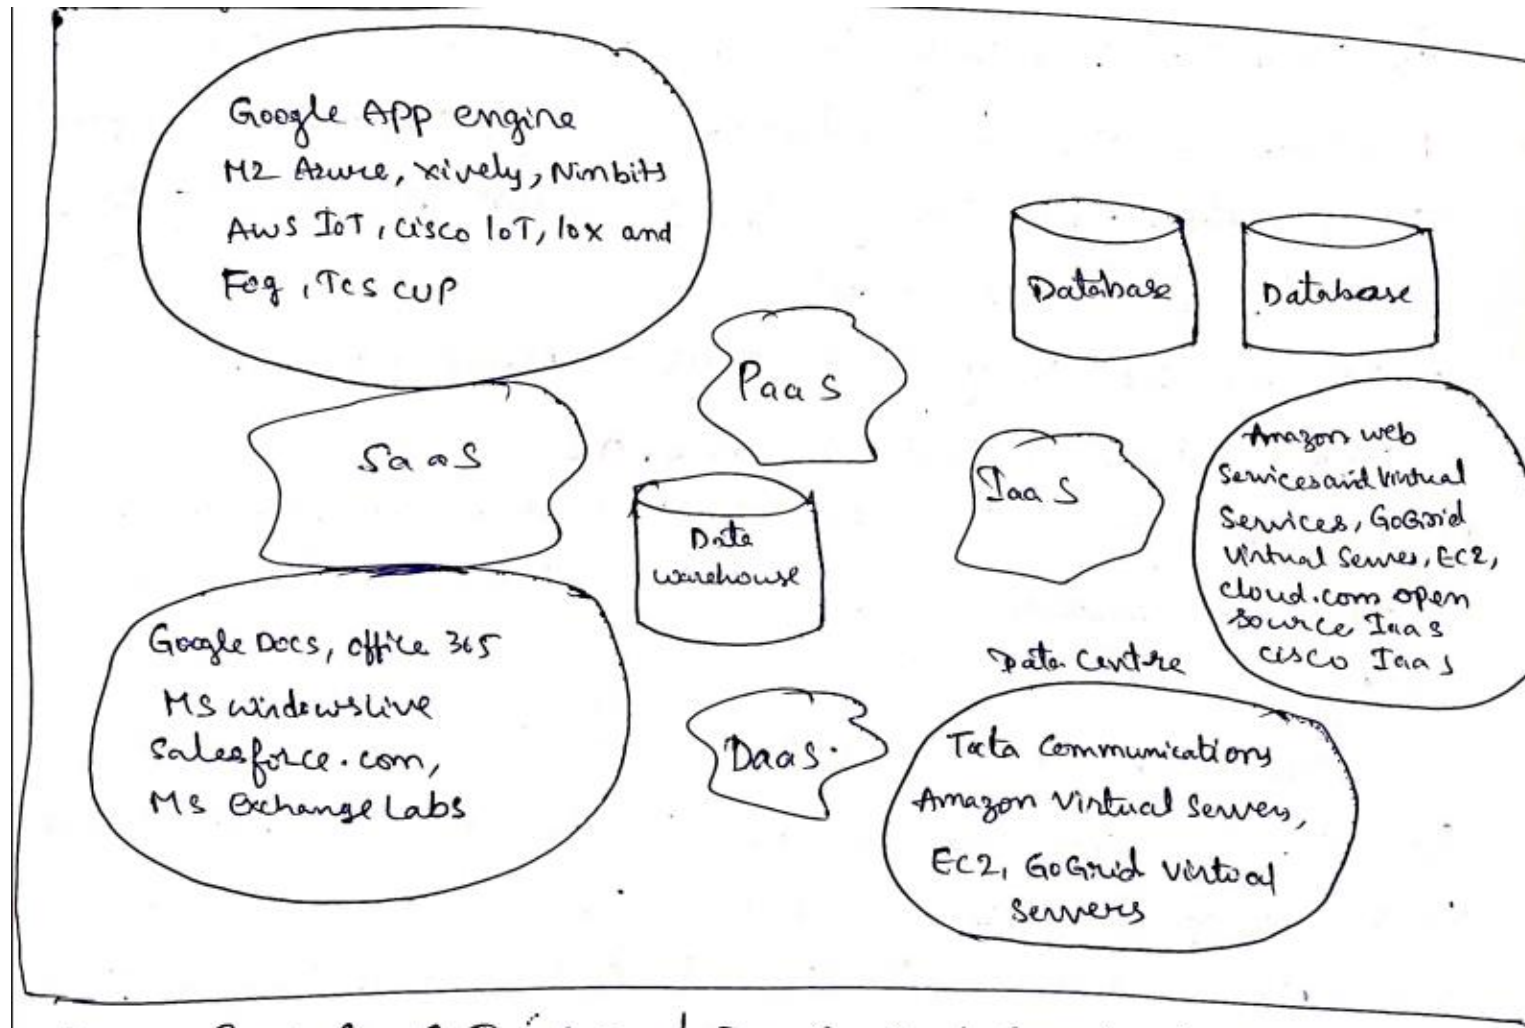 Google APP engine
M2 Azure, xively, Nimbits
AWS IoT, cisco IoT, Iox and
Fog, TCS CUP
Database
Database
PaaS
SaaS
IaaS
Amazon web
Services and Virtual
Services, GoGrid
Virtual Server, EC2,
cloud.com open
source IaaS
cisco IaaS
Data
warehouse
Google Docs, office 365
MS windows live
Salesforce.com,
MS Exchange Labs
Data Centre
DaaS.
Tata Communications
Amazon Virtual Servers,
EC2, GoGrid Virtual
Servers